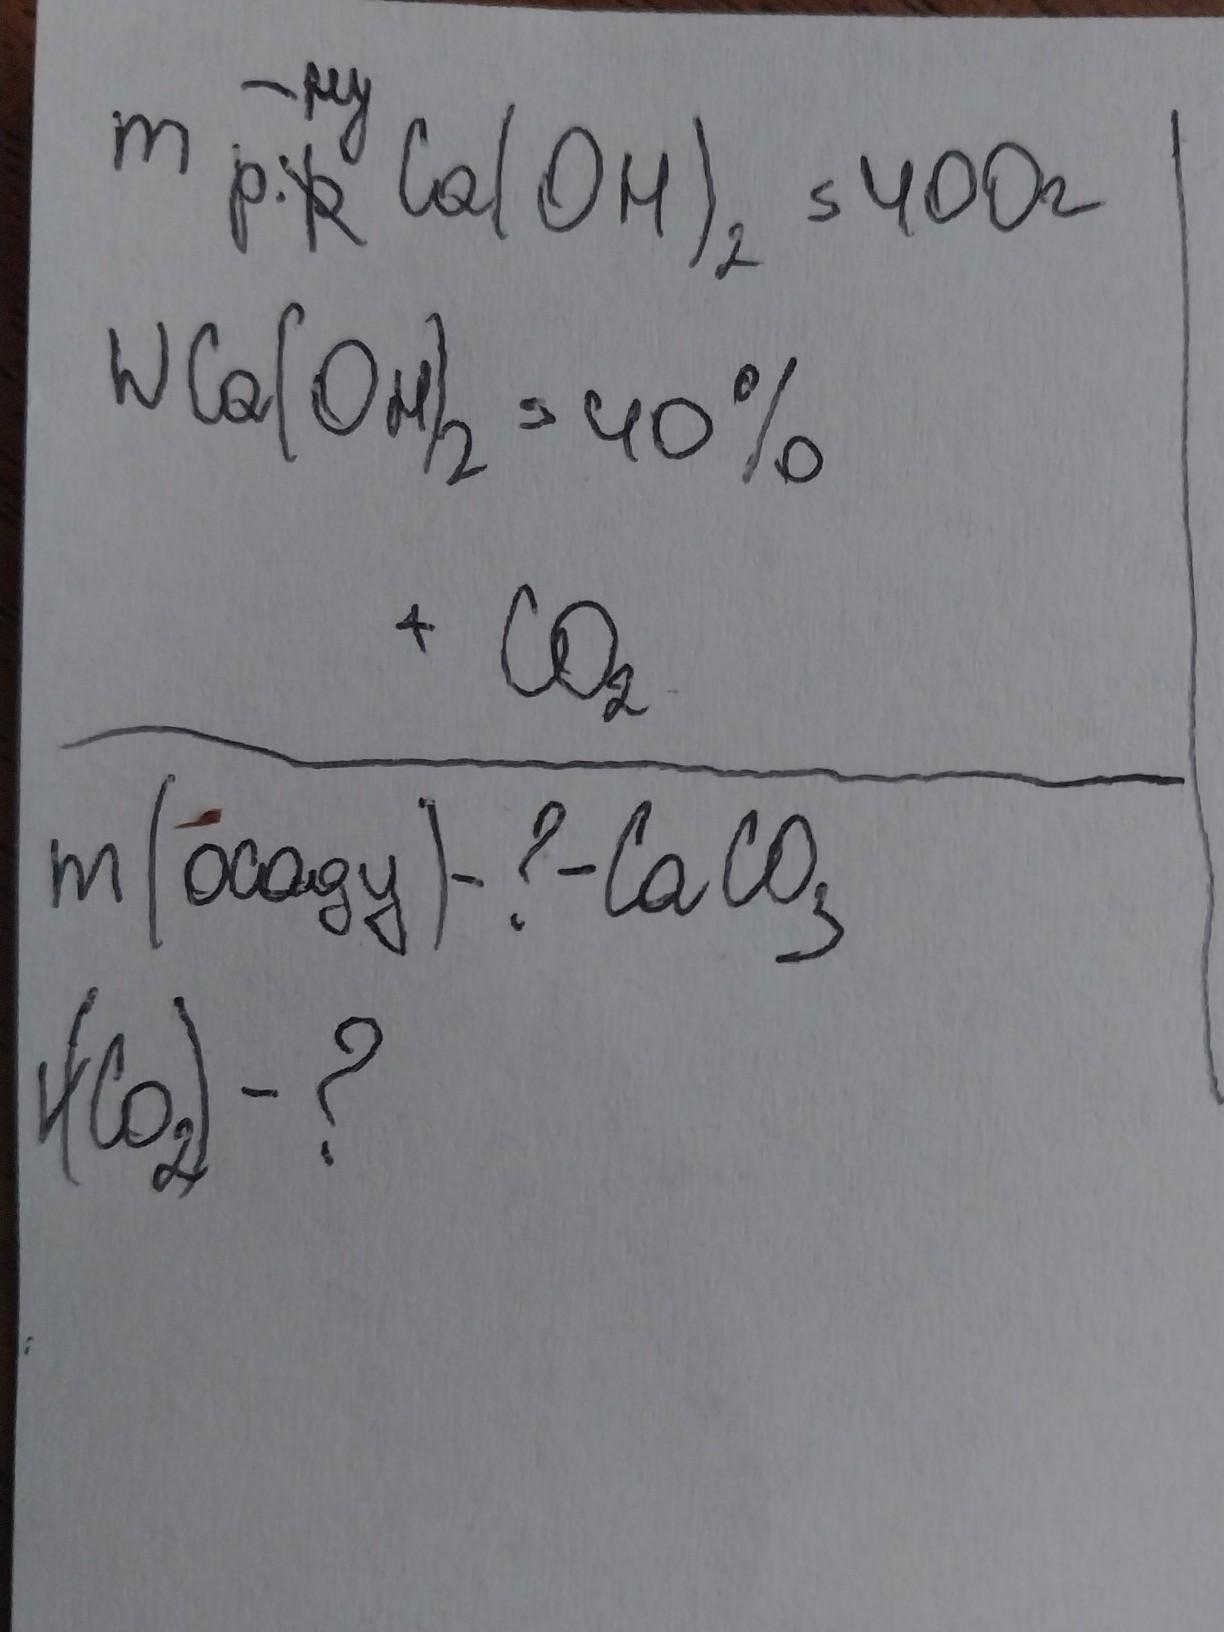 m р-ну Ca(OH)₂ = 400г
W Ca(OH)₂ = 40%
+ CO₂
m(осаду) - ? - CaCO₃
V(CO₂) - ?